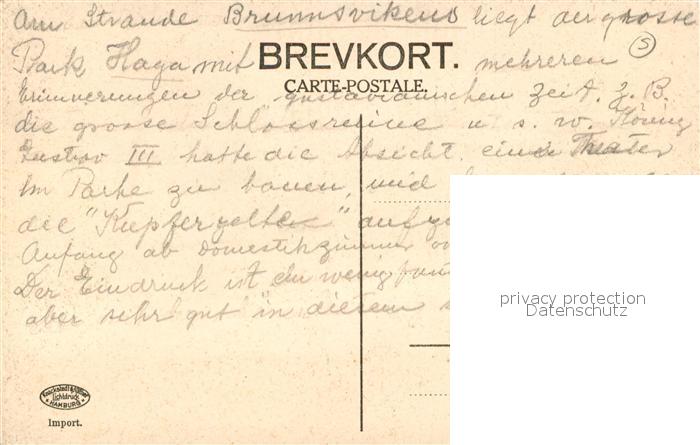 Am Strande Brunnsvikens liegt der grosse
Park Haga mit mehreren (5)
BREVKORT.
CARTE-POSTALE.
Erinnerungen der gustavianischen Zeit. z. B.
die grosse Schlossruine u. s. w. König
Gustav III hatte die Absicht ein Theater
Im Parke zu bauen, und
die "Kupferzelte"
Anfang ab Domestikzimmer
Der Eindruck ist ein wenig
aber sehr gut in diesem
privacy protection
Datenschutz
Knackstedt & Näther
Lichtdruck
HAMBURG
Import.